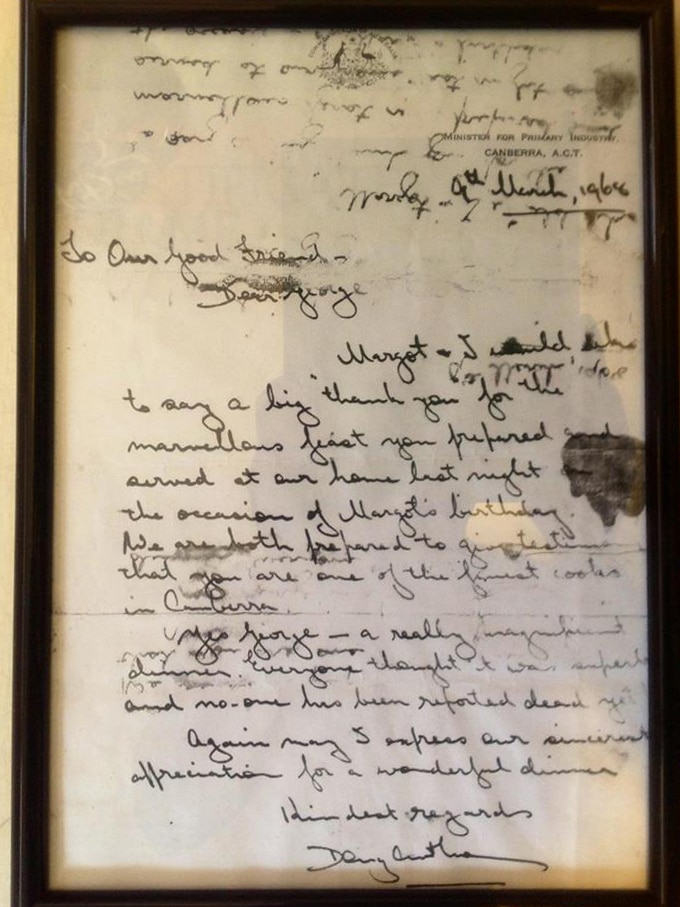 MINISTER FOR PRIMARY INDUSTRY.
CANBERRA, A.C.T.
9th March, 1968
To Our Good Friend -
Dear George
Margot & I would like
to say a big "thank you" for the
marvellous feast you prepared and
served at our home last night on
the occasion of Margot's birthday.
We are both prepared to give
that you are one of the finest cooks
in Canberra.
Yes George - a really magnificent
dinner. Everyone thought it was superb
and no-one has been reported dead yet
Again may I express our sincerest
appreciation for a wonderful dinner
Kindest regards
Doug Anthony